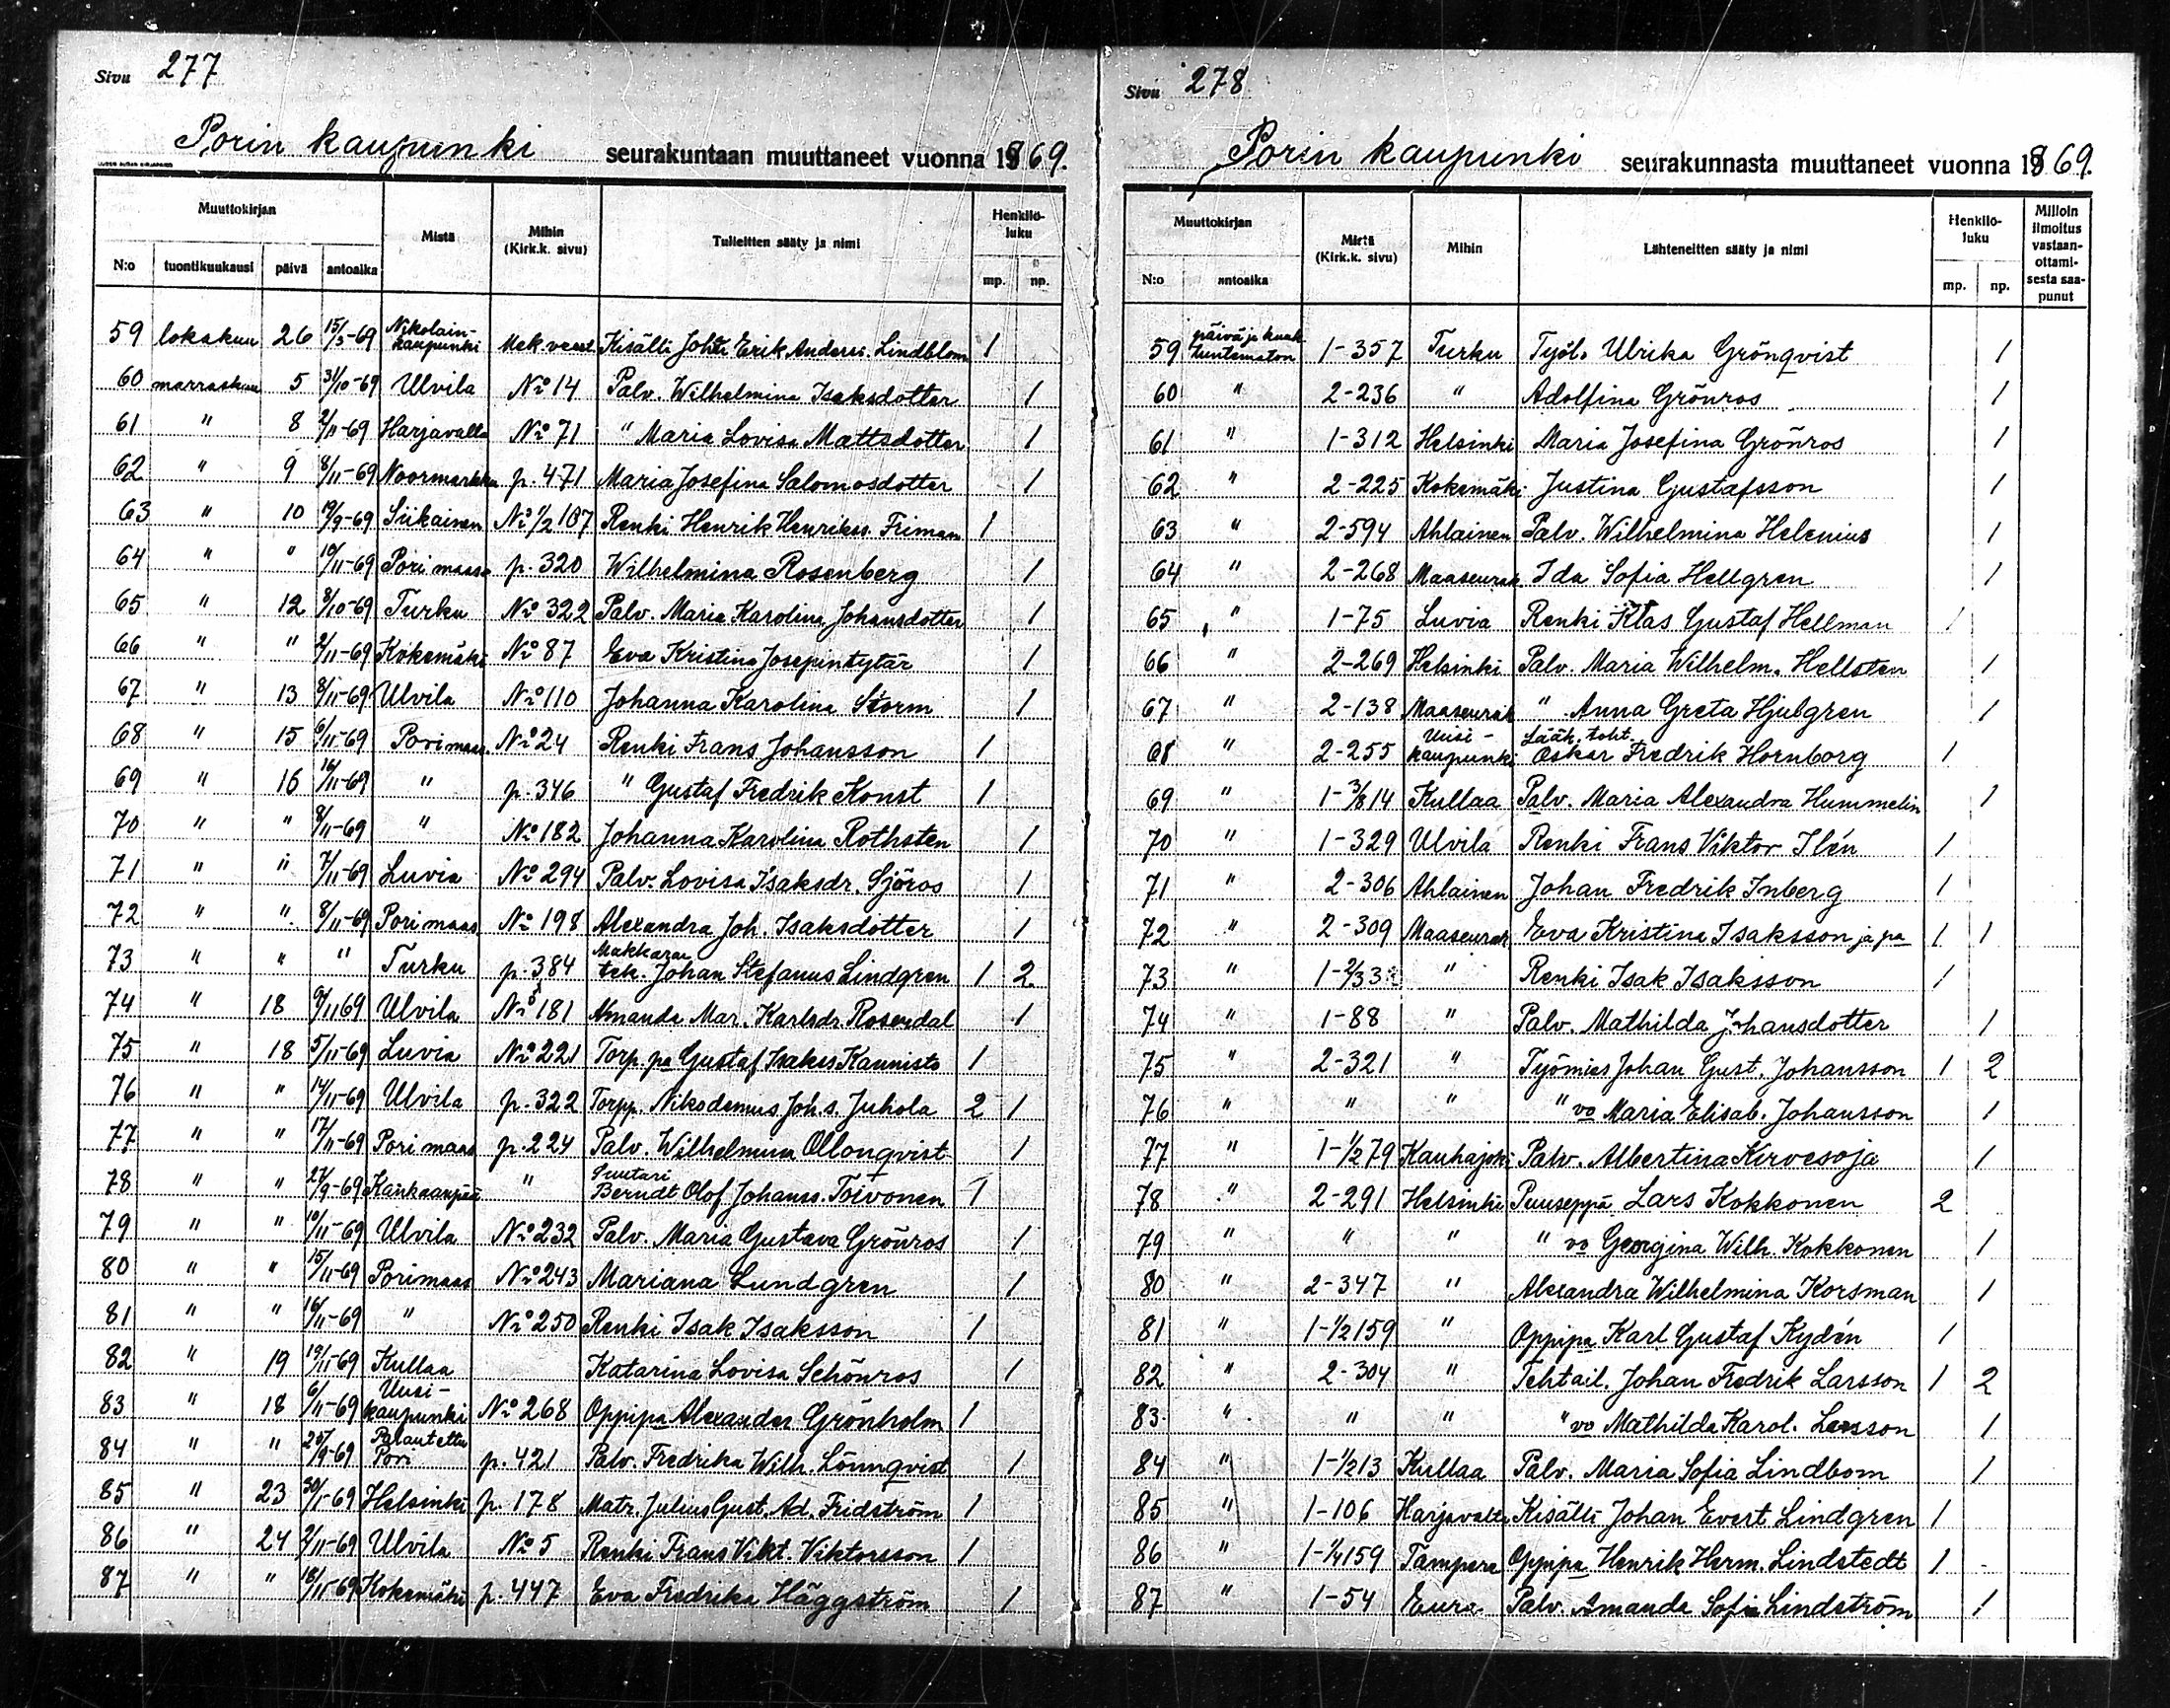 Sivu 277
Porin kaupunki seurakuntaan muuttaneet vuonna 1869.
Muuttokirjan Mistä Mihin (Kirk.k. sivu) Tulleitten sääty ja nimi Henkilö-luku
N:o tuontikuukausi päivä antoaika mp. np.
59 lokakuu 26 15/3-69 Nikolain-kaupunki Kisälli Erik Anderss. Lindblom 1
60 marraskuu 5 31/10-69 Ulvila No 14 Palv. Wilhelmina Isaksdotter 1
61 " 8 2/11-69 Harjavalta No 71 " Maria Lovisa Mattsdotter 1
62 " 9 8/11-69 Noormarkku p. 471 Maria Josefina Salomosdotter 1
63 " 10 19/9-69 Siikainen No 1/2 107 Renki Henrik Henrikss. Friman 1
64 " " 10/11-69 Pori maas. p. 320 Wilhelmina Rosenberg 1
65 " 12 8/10-69 Turku No 322 Palv. Maria Karolina Johansdotter 1
66 " " 2/11-69 Kokemäki No 87 Eva Kristina Josepintytär 1
67 " 13 8/11-69 Ulvila No 110 Johanna Karolina Storm 1
68 " 15 6/11-69 Pori maas. No 24 Renki Frans Johansson 1
69 " 16 16/11-69 " p. 346 " Gustaf Fredrik Konst 1
70 " " 8/11-69 " No 182 Johanna Karolina Rothsten 1
71 " " 7/11-69 Luvia No 294 Palv. Lovisa Isaksdr. Sjöros 1
72 " " 8/11-69 Pori maas. No 198 Alexandra Joh. Isaksdotter 1
73 " " " Turku p. 384 Makkaran tek. Johan Stefanus Lindgren 1 2
74 " 18 9/11 69 Ulvila No 181 Amanda Mar. Karlsdr. Rosendal 1
75 " 18 5/11-69 Luvia No 221 Torp. pa Gustaf Isakss Kaunisto 1
76 " " 14/11-69 Ulvila p. 322 Torpp. Nikodemus Joh.s. Juhola 2 1
77 " " 17/11-69 Pori maas p. 224 Palv. Wilhelmina Ollonqvist 1
78 " " 21/9-69 Kankaanpää " Suutari Berndt Olof Johanss. Toivonen 1
79 " " 10/11-69 Ulvila No 232 Palv. Maria Gustava Grönros 1
80 " " 15/11-69 Pori maas No 243 Mariana Lundgren 1
81 " " 16/11-69 " No 250 Renki Isak Isaksson 1
82 " 19 19/11-69 Kullaa Katarina Lovisa Schönros 1
83 " 18 6/11-69 Uusi-kaupunki No 268 Oppipa Alexander Grönholm 1
84 " " 25/9-69 Palautettu Pori p. 421 Palv. Fredrika Wilh. Lönnqvist 1
85 " 23 30/1-69 Helsinki p. 178 Matr. Julius Gust. Ad. Fridström 1
86 " 24 2/11-69 Ulvila No 5 Renki Frans Vikt. Viktorsson 1
87 " " 18/11-69 Kokemäki p. 447 Eva Fredrika Häggström 1
Sivu 278
Porin kaupunki seurakunnasta muuttaneet vuonna 1869.
Muuttokirjan Mistä (Kirk.k. sivu) Mihin Lähteneitten sääty ja nimi Henkilö-luku Milloin ilmoitus vastaan-ottami-sesta saa-punut
N:o antoaika mp. np.
59 päivä ja kuuk tuntematon 1-357 Turku Työl. Ulrika Grönqvist 1
60 " 2-236 " Adolfina Grönros 1
61 " 1-312 Helsinki Maria Josefina Grönros 1
62 " 2-225 Kokemäki Justina Gustafsson 1
63 " 2-594 Ahlainen Palv. Wilhelmina Helenius 1
64 " 2-268 Maaseurak. Ida Sofia Hellgren 1
65 " 1-75 Luvia Renki Klas Gustaf Hellman 1
66 " 2-269 Helsinki Palv. Maria Wilhelm. Hellsten 1
67 " 2-138 Maaseurak " Anna Greta Hjulgren 1
68 " 2-255 Uusi-kaupunki Lääk. toht. Oskar Fredrik Hornborg 1
69 " 1-3/814 Kullaa Palv. Maria Alexandra Hummelin 1
70 " 1-329 Ulvila Renki Frans Viktor Ilén 1
71 " 2-306 Ahlainen Johan Fredrik Inberg 1
72 " 2-309 Maaseurak Eva Kristina Isaksson ja pa 1 1
73 " 1-2/33 " Renki Isak Isaksson 1
74 " 1-88 " Palv. Mathilda Johansdotter 1
75 " 2-321 " Työmies Johan Gust. Johansson 1 2
76 " " " " vo Maria Elisab. Johansson 1
77 " 1-1/279 Kauhajoki Palv. Albertina Kirvesoja 1
78 " 2-291 Helsinki Puuseppä Lars Kokkonen 2
79 " " " " vo Georgina Wilh. Kokkonen 1
80 " 2-347 " Alexandra Wilhelmina Korsman 1
81 " 1-1/2159 " Oppipa Karl Gustaf Kydén 1
82 " 2-304 " Tehtail. Johan Fredrik Larsson 1 2
83 " " " " vo Mathilda Karol. Larsson 1
84 " 1-1/213 Kullaa Palv. Maria Sofia Lindbom 1
85 " 1-106 Harjavalta Kisälli Johan Evert Lindgren 1
86 " 1-1/4159 Tampere Oppipa Henrik Herm. Lindstedt 1
87 " 1-54 Eura Palv. Amanda Sofia Lindström 1